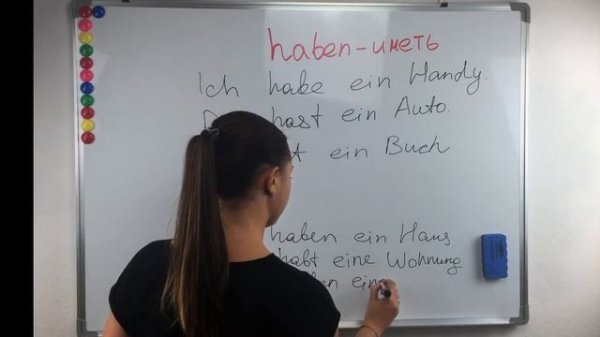 haben - иметь
Ich habe ein Handy.
hast ein Auto.
ein Buch
haben ein Haus
habt eine Wohnung
ein